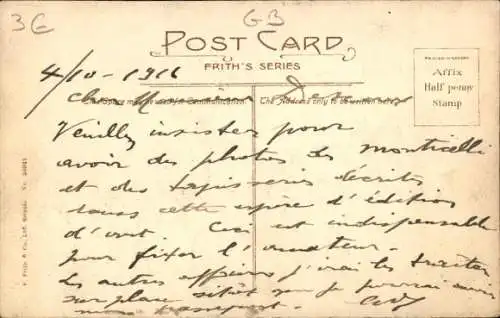 3€
GB
POST CARD
FRITH'S SERIES
4/10-1916
This Space may be used for Communication
The Address only to be written here
Affix
Half penny
Stamp
Veuillez insister pour
avoir des photos des monticelli
et des tapisseries décrits
dans cette espèce d'édition
d'art. Ceci est indispensable
pour fixer l'amateur.
Les autres affaires j'irai les traiter
sur place sitôt que je pourrai avoir
mon passeport.
F. Frith & Co., Ltd., Reigate. No.